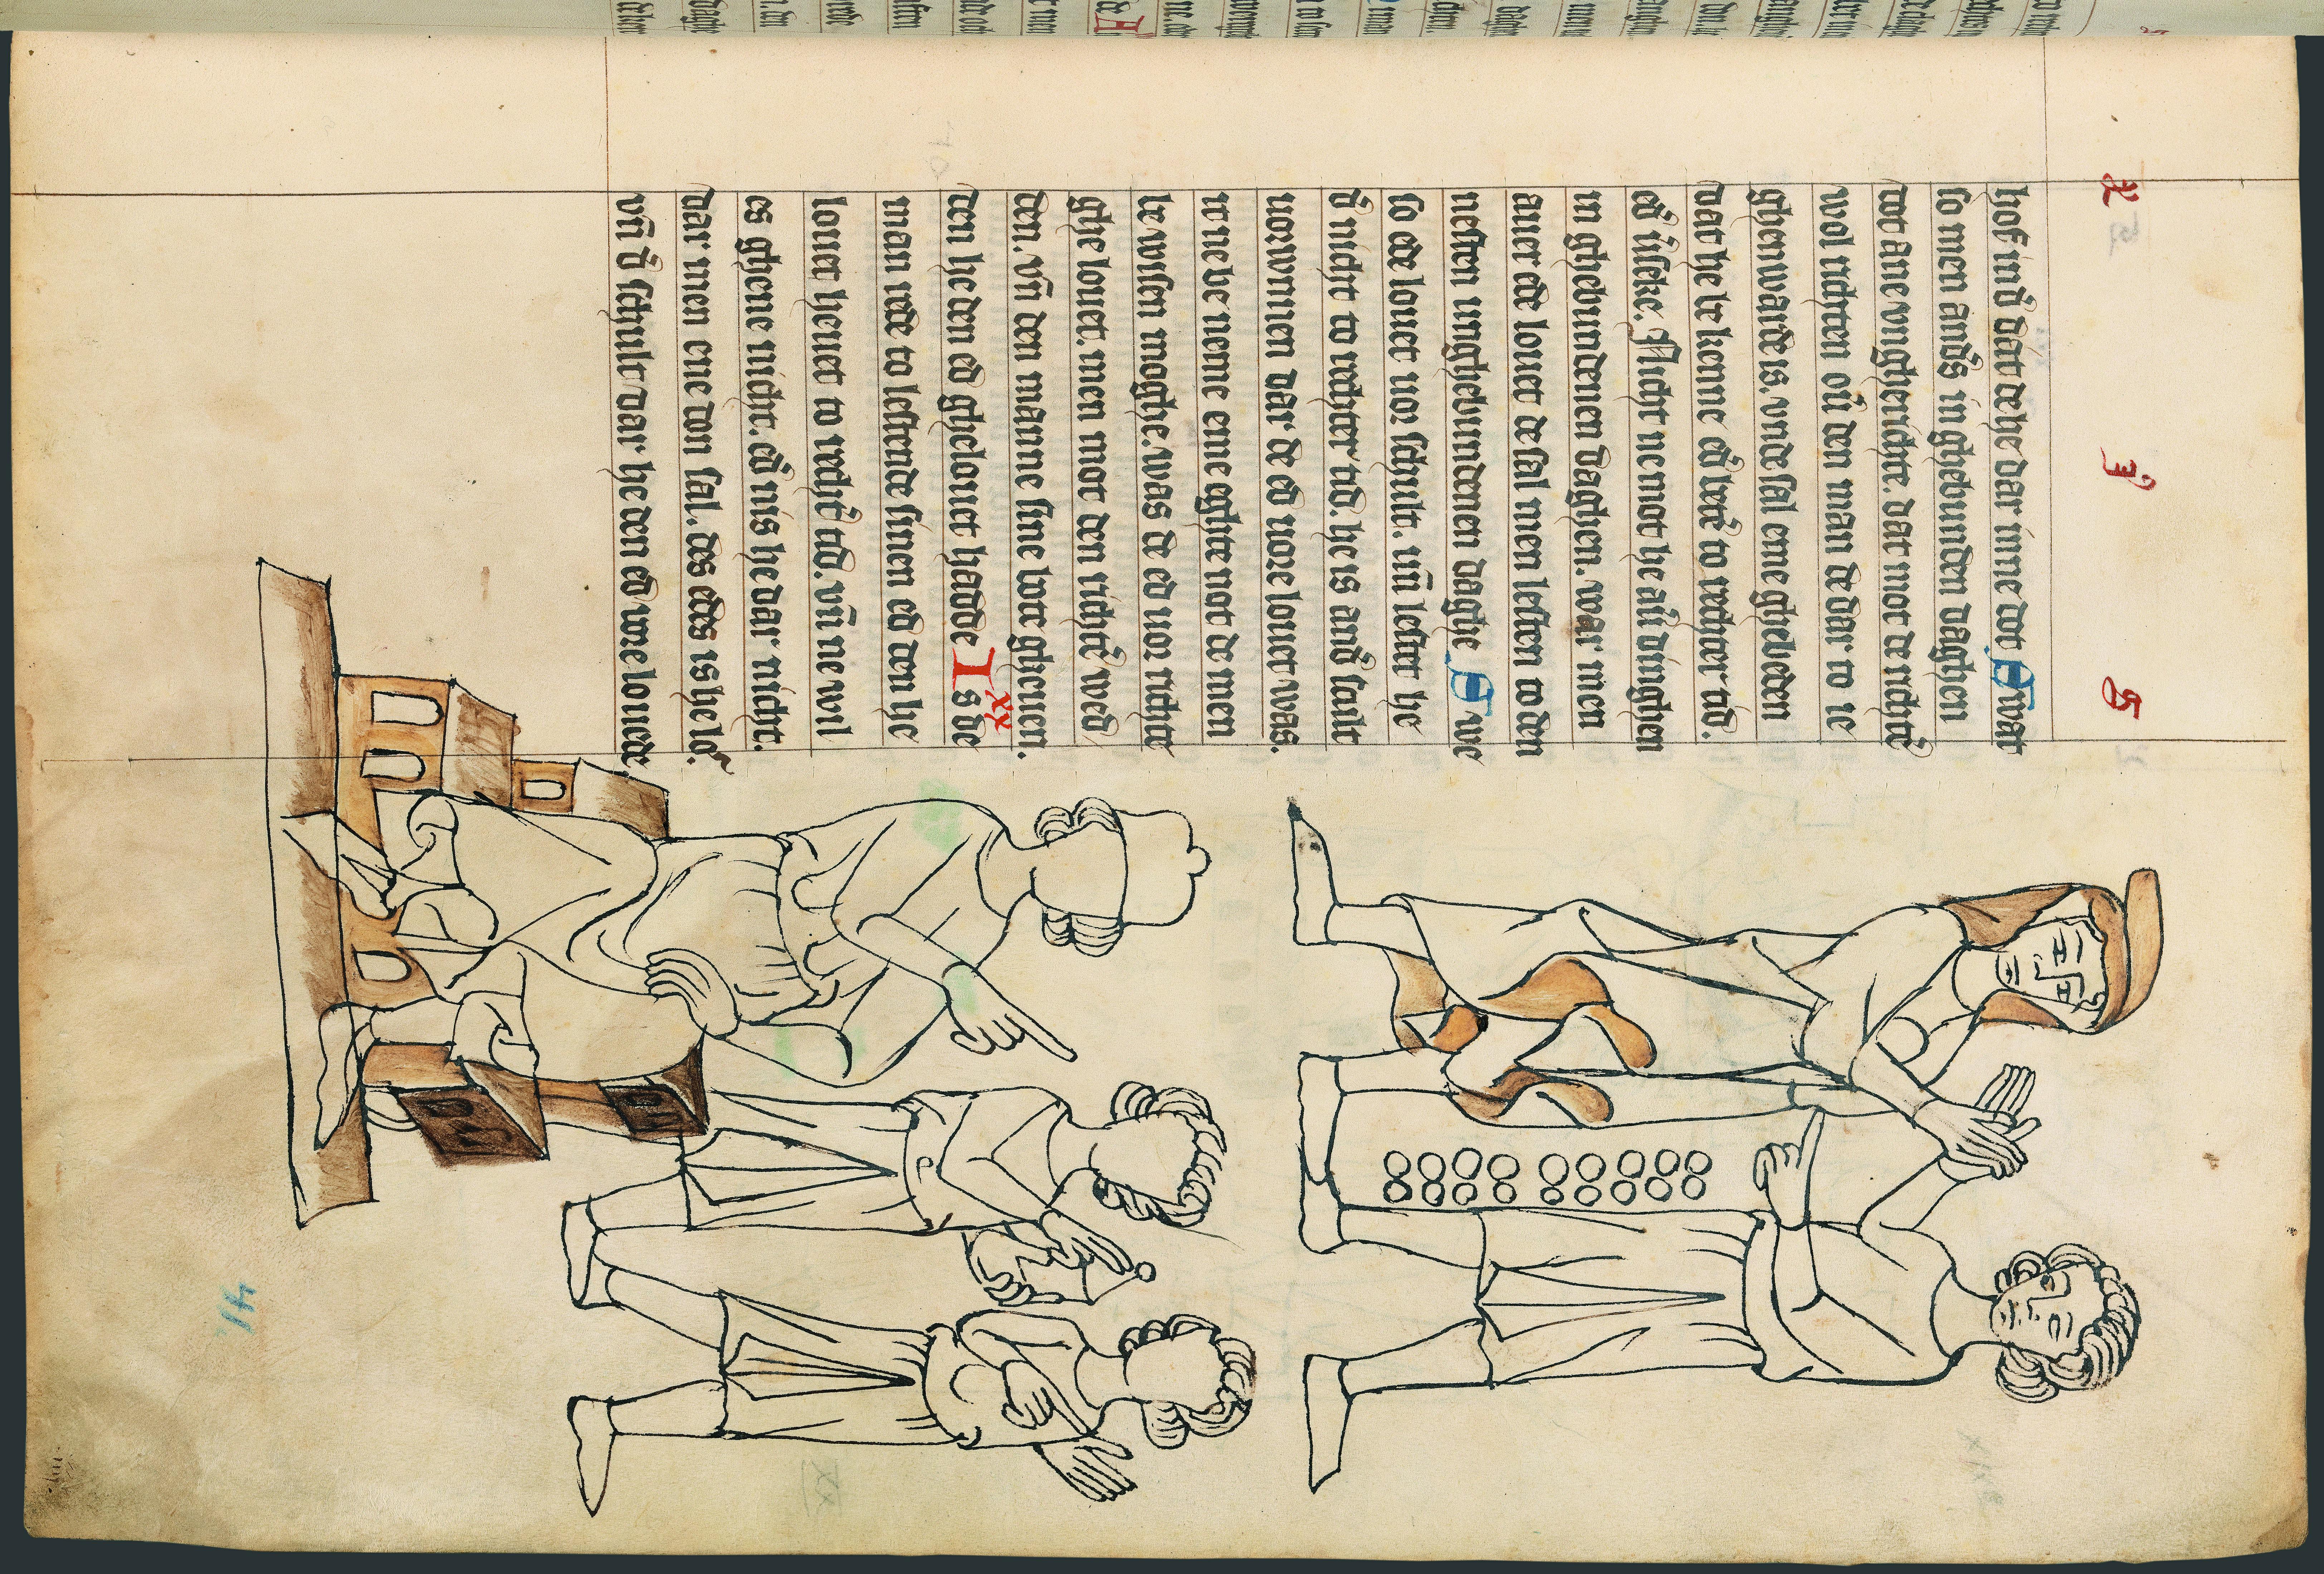 X j G
hof und̄ datt de he dar inne dot Swar
so men anders in ghebunden daghen
dot ane vngherichte. dat mot de richtē
wol richten ou̅ den man de dar to ie
ghenwarde is. vnde sal eme ghebeden
dat he bekenne ed̄ to rechter tid.
ed̄ Nicht ne mot he dinghen
in ghebundenen daghen. war men
auer ede louet de sal men lesten to den
nesten unghebundenen daghe S we
so ede louet uor schult. uñ lestet he
d̄ nicht to rechter tid. he is and̄ schult
uorwunnen dar de ed uore louet was.
it ne be neme eme eghte not de men
bewisen moghe. was de ed uor richte
ghe louet. men mot den richtē wed
den. vñ den manne sine bote gheuen.
den he den ed ghelouet hadde Is de
xx
man rede to lestende sinen ed den he
louet heuet to rechtē tid. vñ ne wil
es ghene nicht. ed̄ nis he dar nicht.
dar men ene don sal. des edes is he lo
vñ d̄ schult dar he den ed vore louede
41